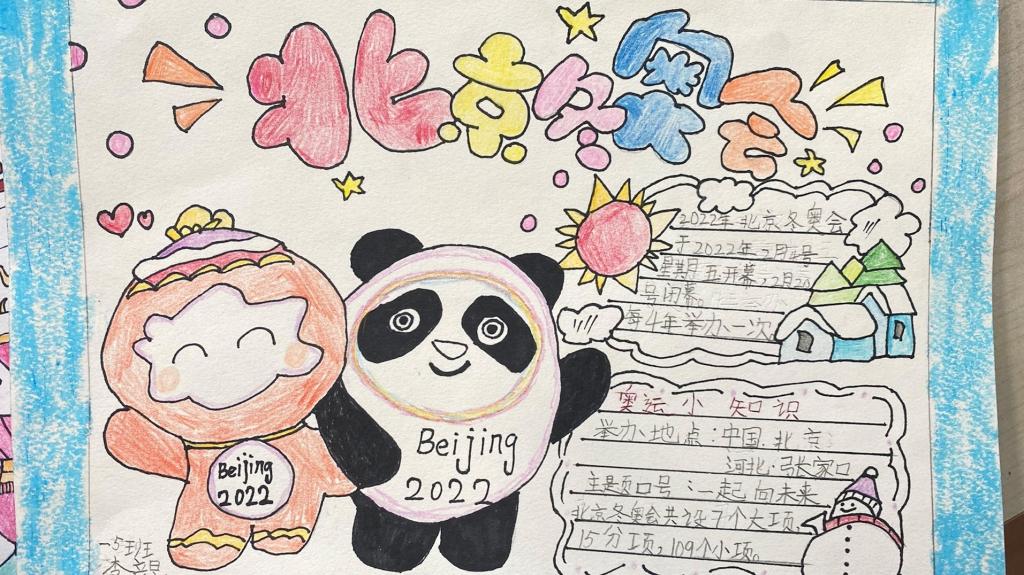 北京冬奥会
2022年北京冬奥会
于2022年2月4号
星期五开幕,2月20
号闭幕。
每4年举办一次
奥运小知识
举办地点:中国.北京
河北.张家口
主题口号:一起向未来
北京冬奥会共设7个大项
15分项,109个小项。
Beijing
2022
Beijing
2022
一5班
李